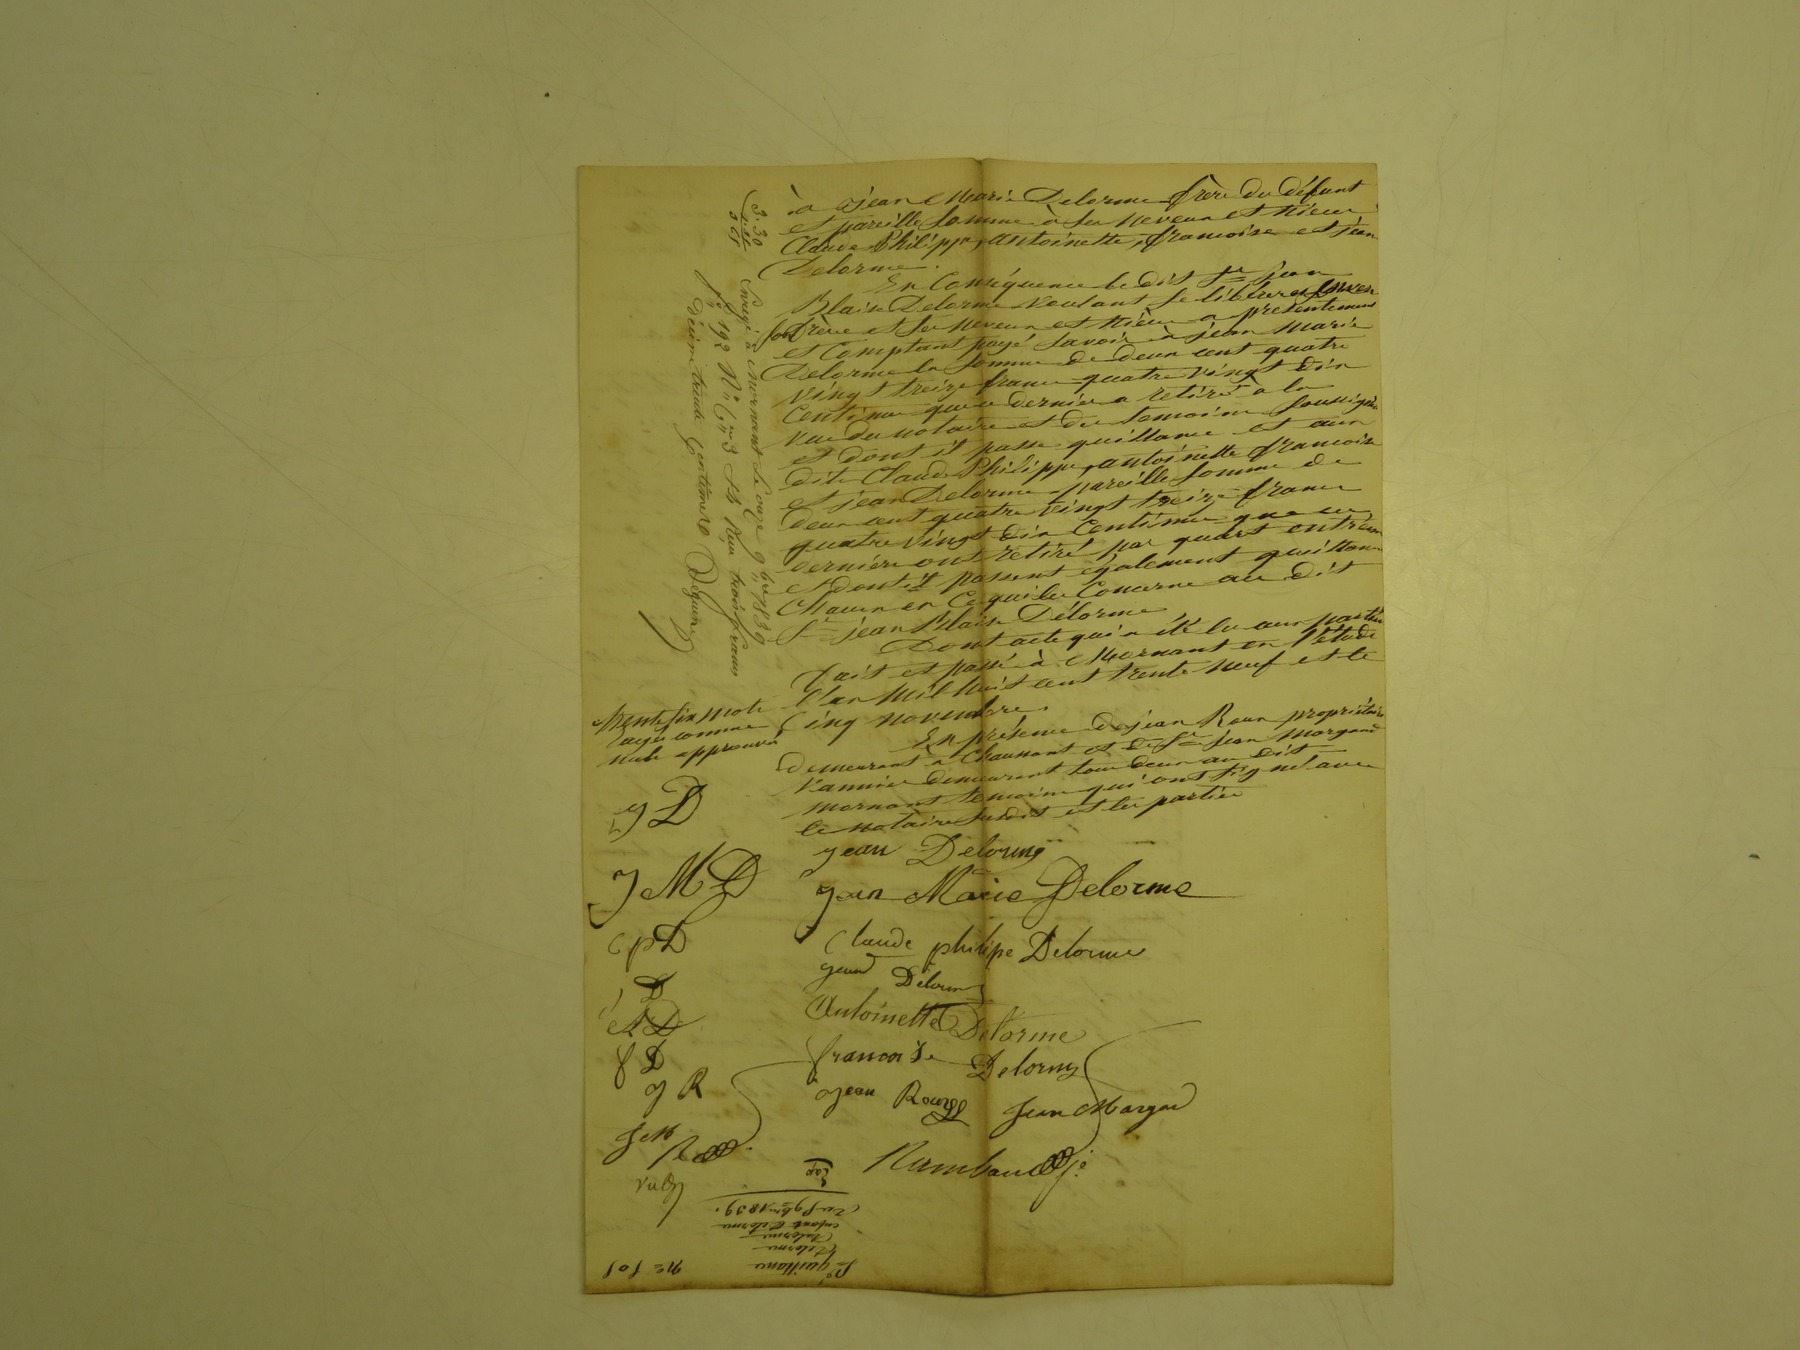 à jean Marie Delorme frère du défunt
et pareille somme à ses neveux et nieces
Claude Philippe, antoinette, francoise et jean
Delorme.
En Conséquence le dit Sr jean
Blaise Delorme voulant se libérer envers
son frère et ses neveux et nièces a présentement
et Comptant payé savoir à jean Marie
Delorme la somme de deux cent quatre
vingt treize francs quatre vingt dix
Centimes que ce dernier a retiré à la
vue du notaire et des temoins soussignés
et dont il passe quittance et aux
dits Claude Philippe, antoinette francoise
et jean Delorme pareille somme de
deux cent quatre vingt treize francs
quatre vingt dix Centimes que ces
derniers ont retiré par quart entr'eux
et dont ils passent également quittance
Chacun en Ce qui les Concerne au dit
Sr jean Blaise Delorme
Dont acte qui a été lu aux parties
fait et passé à Mornant en l'étude
l'an Mil huit cent trente neuf et le
Cinq novembre.
En présence de jean Roux propriétaire
demeurant à Chaussant et de Sr jean Margand
vannier demeurant tous deux au dit
mornant temoins qui ont signé avec
le notaire susdit et les parties
jean Delorme
jean Marie Delorme
Claude philipe Delorme
jean Delorme
Antoinette Delorme
francoise Delorme
jean Roux
Jean Margand
Rambaud
3.30
Enregé à Mornant le onze 9bre 1839
fo 192 No
trois francs
décime trente Centimes
trente six mots
rayés comme
nuls approuvés
J D
J M D
C p D
J D
A D
f D
J R
J M
R
No 501
quittance
Delorme
Delorme
enfants Delorme
Du 5 9bre 1839.
Exp